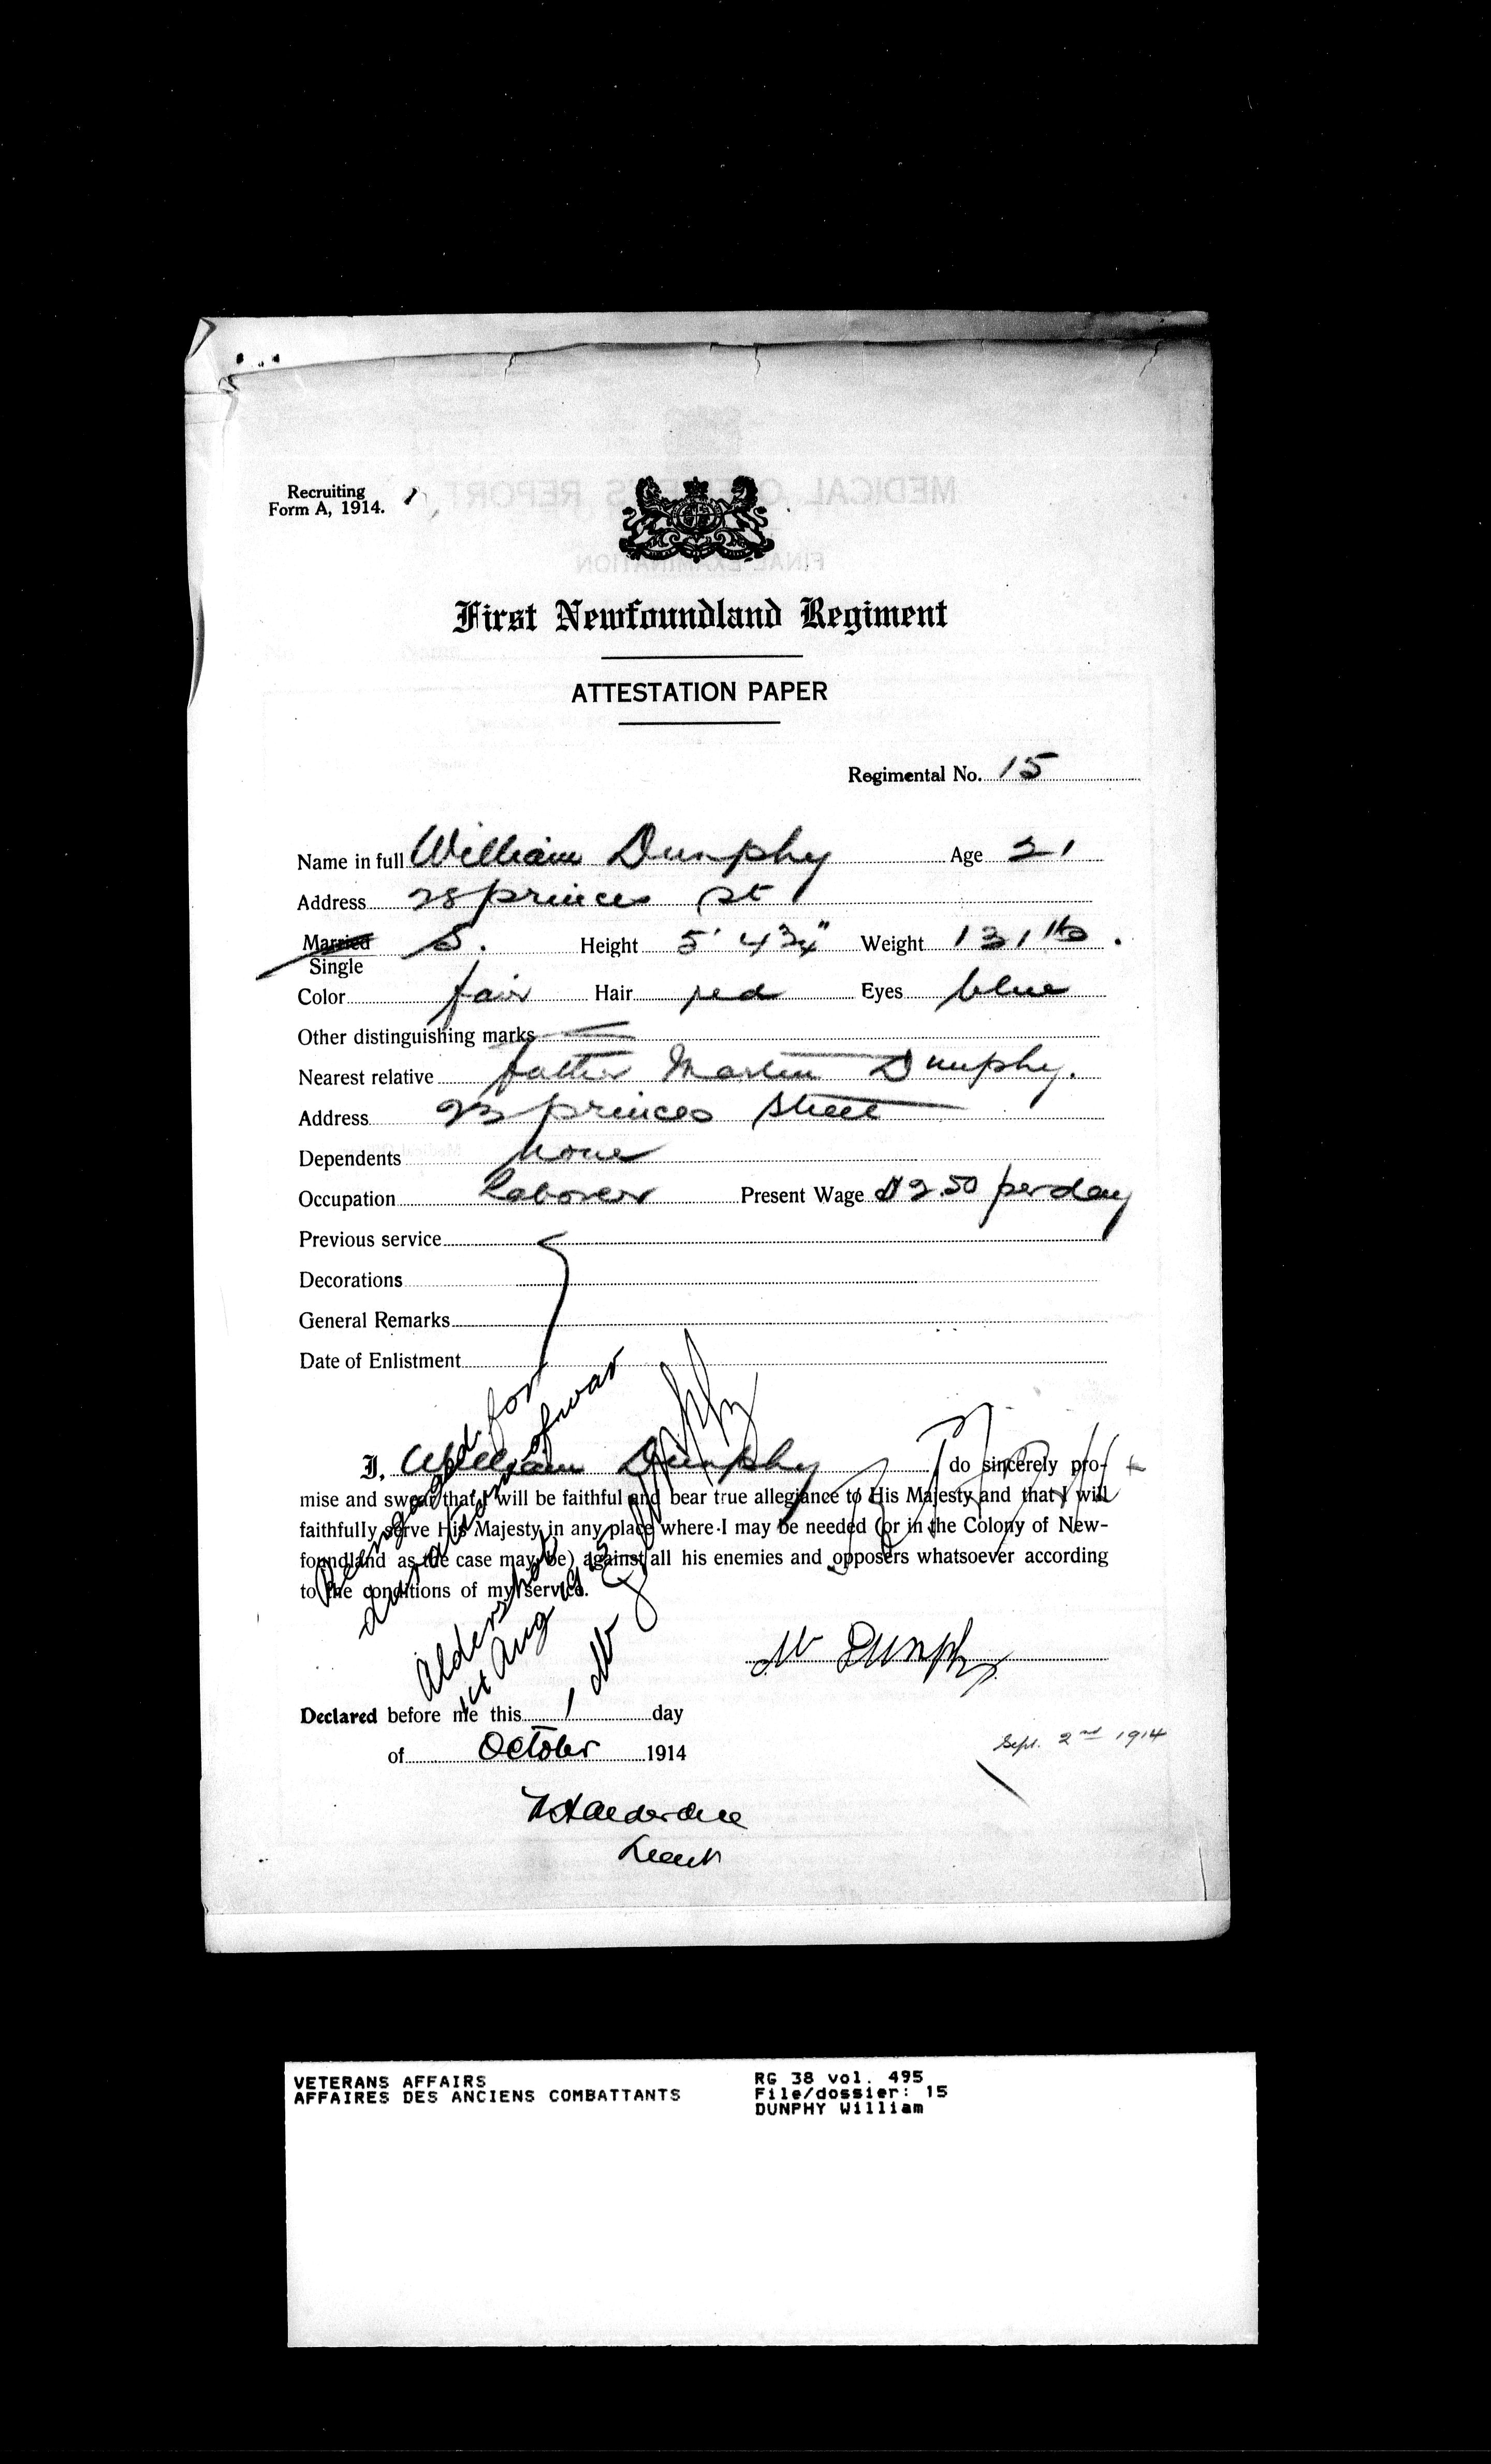 Recruiting
Form A, 1914.
First Newfoundland Regiment
ATTESTATION PAPER
Regimental No. 15
Name in full William Dunphy Age 21
Address princes st
Married S. Height 5' 4 3/4" Weight 131 lb.
Single
Color fair Hair red Eyes blue
Other distinguishing marks
Nearest relative father Martin Dunphy.
Address princes Street
Dependents none
Occupation Laborer Present Wage $2.50 per day
Previous service
Decorations
General Remarks
Date of Enlistment
I, William Dunphy do sincerely pro-
mise and swear that I will be faithful and bear true allegiance to His Majesty and that I will
faithfully serve His Majesty in any place where I may be needed (or in the Colony of New-
foundland as the case may be) against all his enemies and opposers whatsoever according
to the conditions of my service.
Reengaged for
duration of war
Aldershot
14 Aug 1915
W Dunphy
W Dunphy
Declared before me this 1 day
of October 1914
Sept. 2nd 1914
Lieut
VETERANS AFFAIRS
AFFAIRES DES ANCIENS COMBATTANTS
RG 38 vol. 495
File/dossier: 15
DUNPHY William